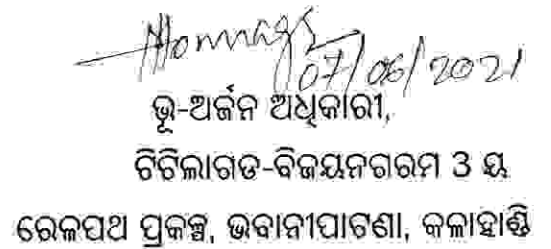 07/06/2021
ଭୂ-ଅର୍ଜନ ଅଧିକାରୀ,
ଟିଟିଲାଗଡ-ବିଜୟନଗରମ 3 ୟ
ରେଳପଥ ପ୍ରକଳ୍ପ, ଭବାନୀପାଟଣା, କଳାହାଣ୍ଡି